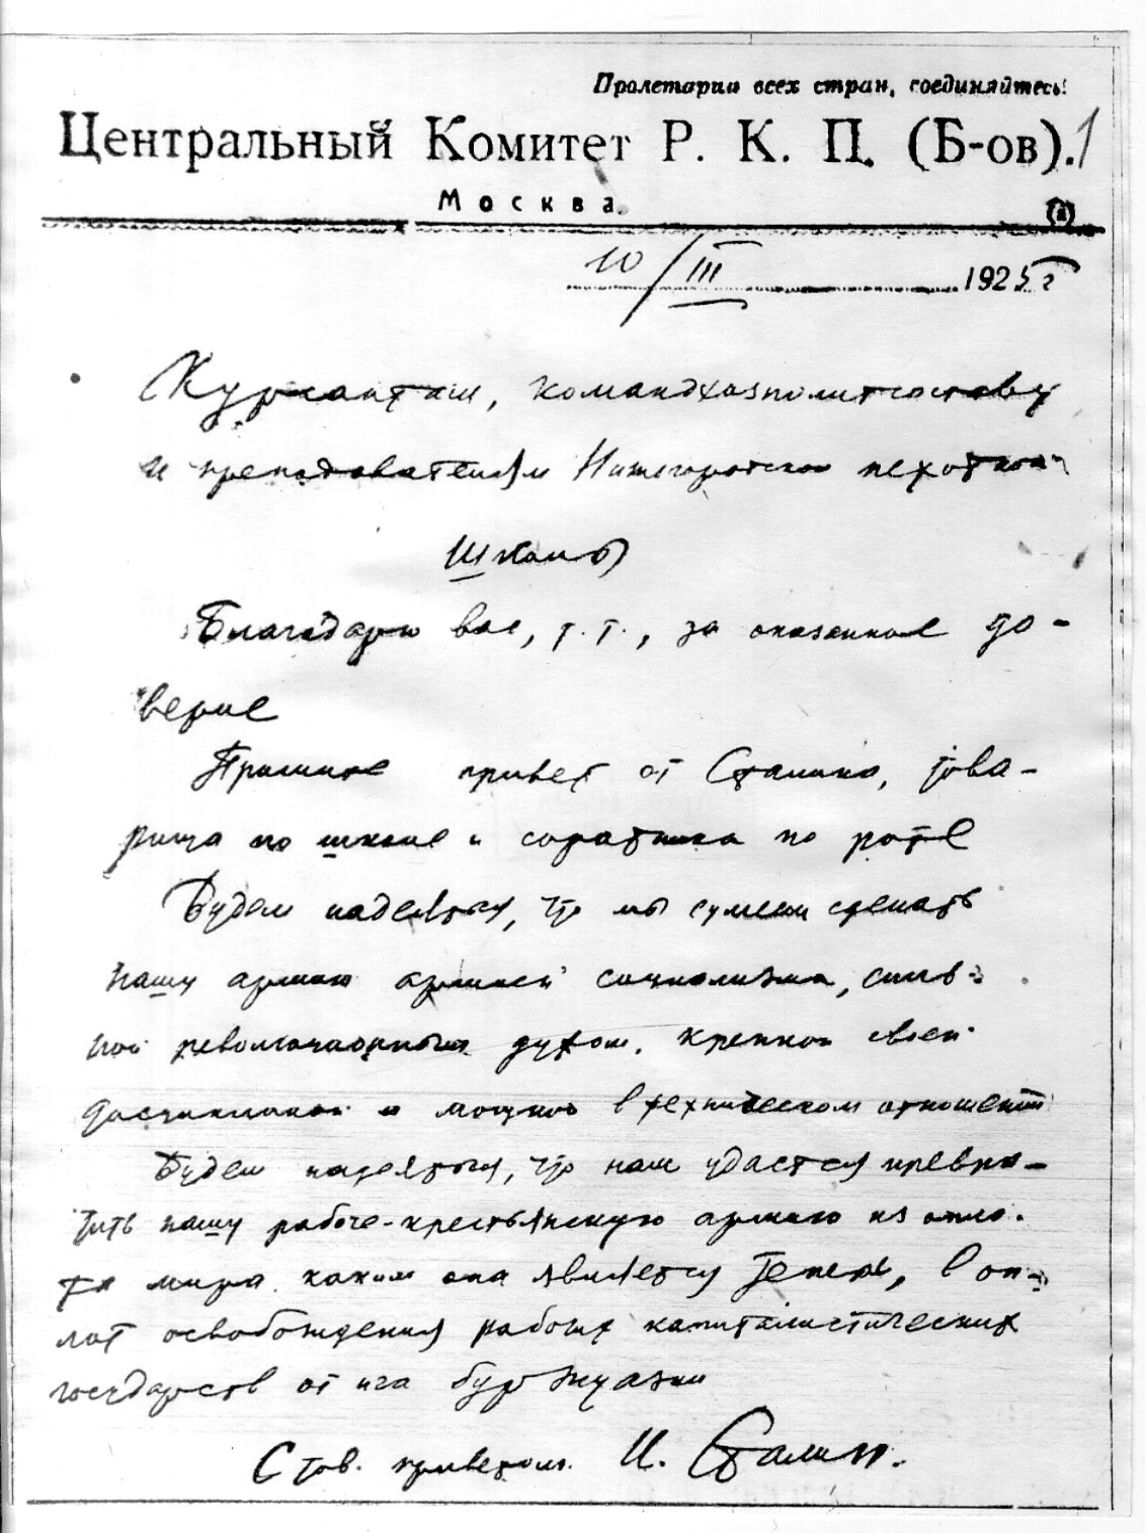 Пролетарии всех стран, соединяйтесь!
Центральный Комитет Р. К. П. (Б-ов). 1
Москва.
10/III 1925 г
Курсантам, командхозполитсоставу
и преподавателям Нижегородской пехотной
школы
Благодарю вас, т.т., за оказанное до-
верие
Примите привет от Сталина, това-
рища по школе и соратника по роте
Будем надеяться, что мы сумеем сделать
нашу армию армией социализма, силь-
ной революционным духом, крепкой своей
дисциплиной и мощной в техническом отношении
Будем надеяться, что нам удастся превра-
тить нашу рабоче-крестьянскую армию из опло-
та мира, каким она является теперь, в оп-
лот освобождения рабочих капиталистических
государств от ига буржуазии
С тов. приветом. И. Сталин.